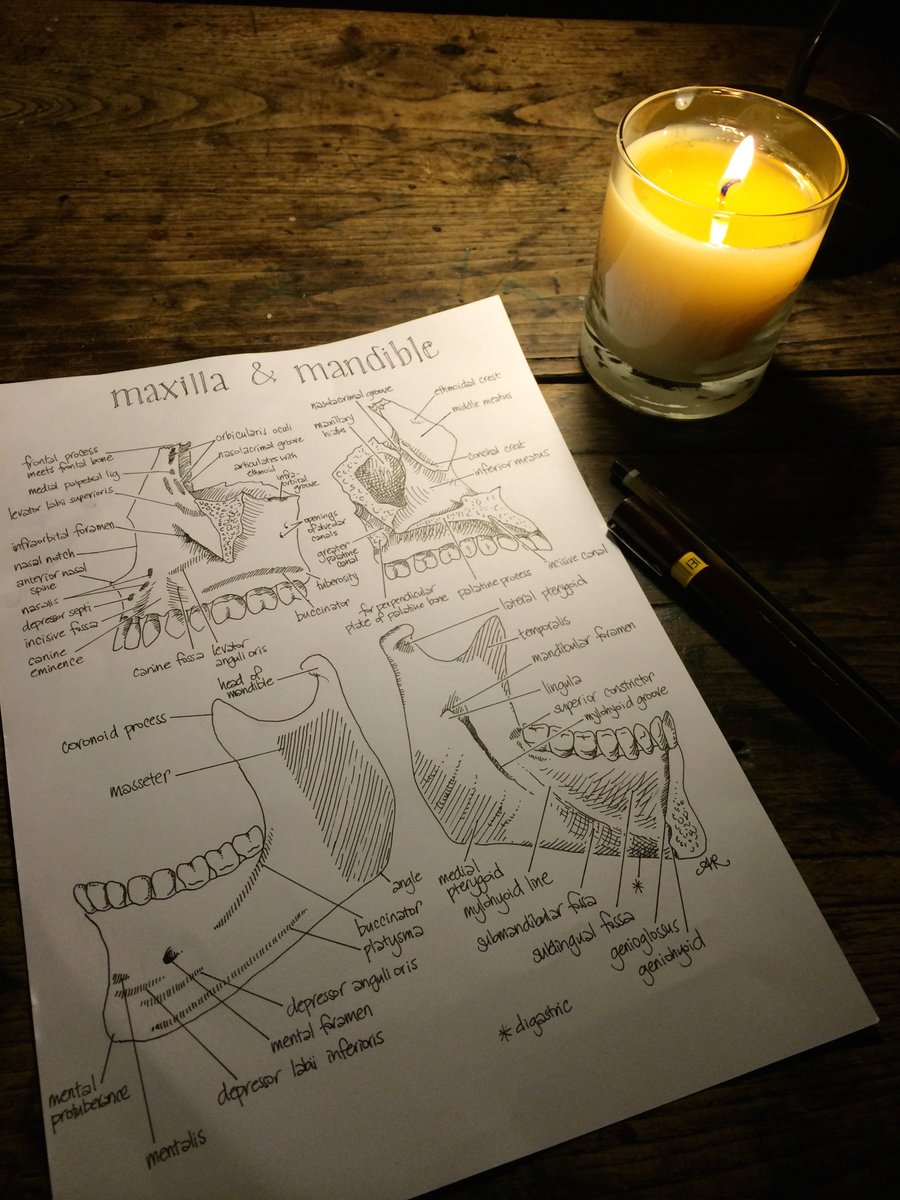 maxilla & mandible
frontal process
meets frontal bone
medial palpetral lig
levator labii superioris
infraorbital foramen
nasal notch
anterior nasal
spine
nasalis
depressor septi
incisive fossa
canine
eminence
orbicularis oculi
nasolacrimal groove
articulates with
ethmoid
infra-
orbital
groove
openings
of alveolar
canals
tuberosity
buccinator
canine fossa
levator
anguli oris
nasolacrimal groove
maxillary
hiatus
ethmoidal crest
middle meatus
conchal crest
inferior meatus
greater
palatine
canal
for perpendicular
plate of palatine bone
palatine process
incisive canal
head of
mandible
coronoid process
masseter
angle
buccinator
platysma
depressor anguli oris
mental foramen
depressor labii inferioris
mental
protuberance
mentalis
lateral pterygoid
temporalis
mandibular foramen
lingula
superior constrictor
mylohyoid groove
medial
pterygoid
mylohyoid line
submandibular fossa
sublingual fossa
*
genioglossus
geniohyoid
* digastric